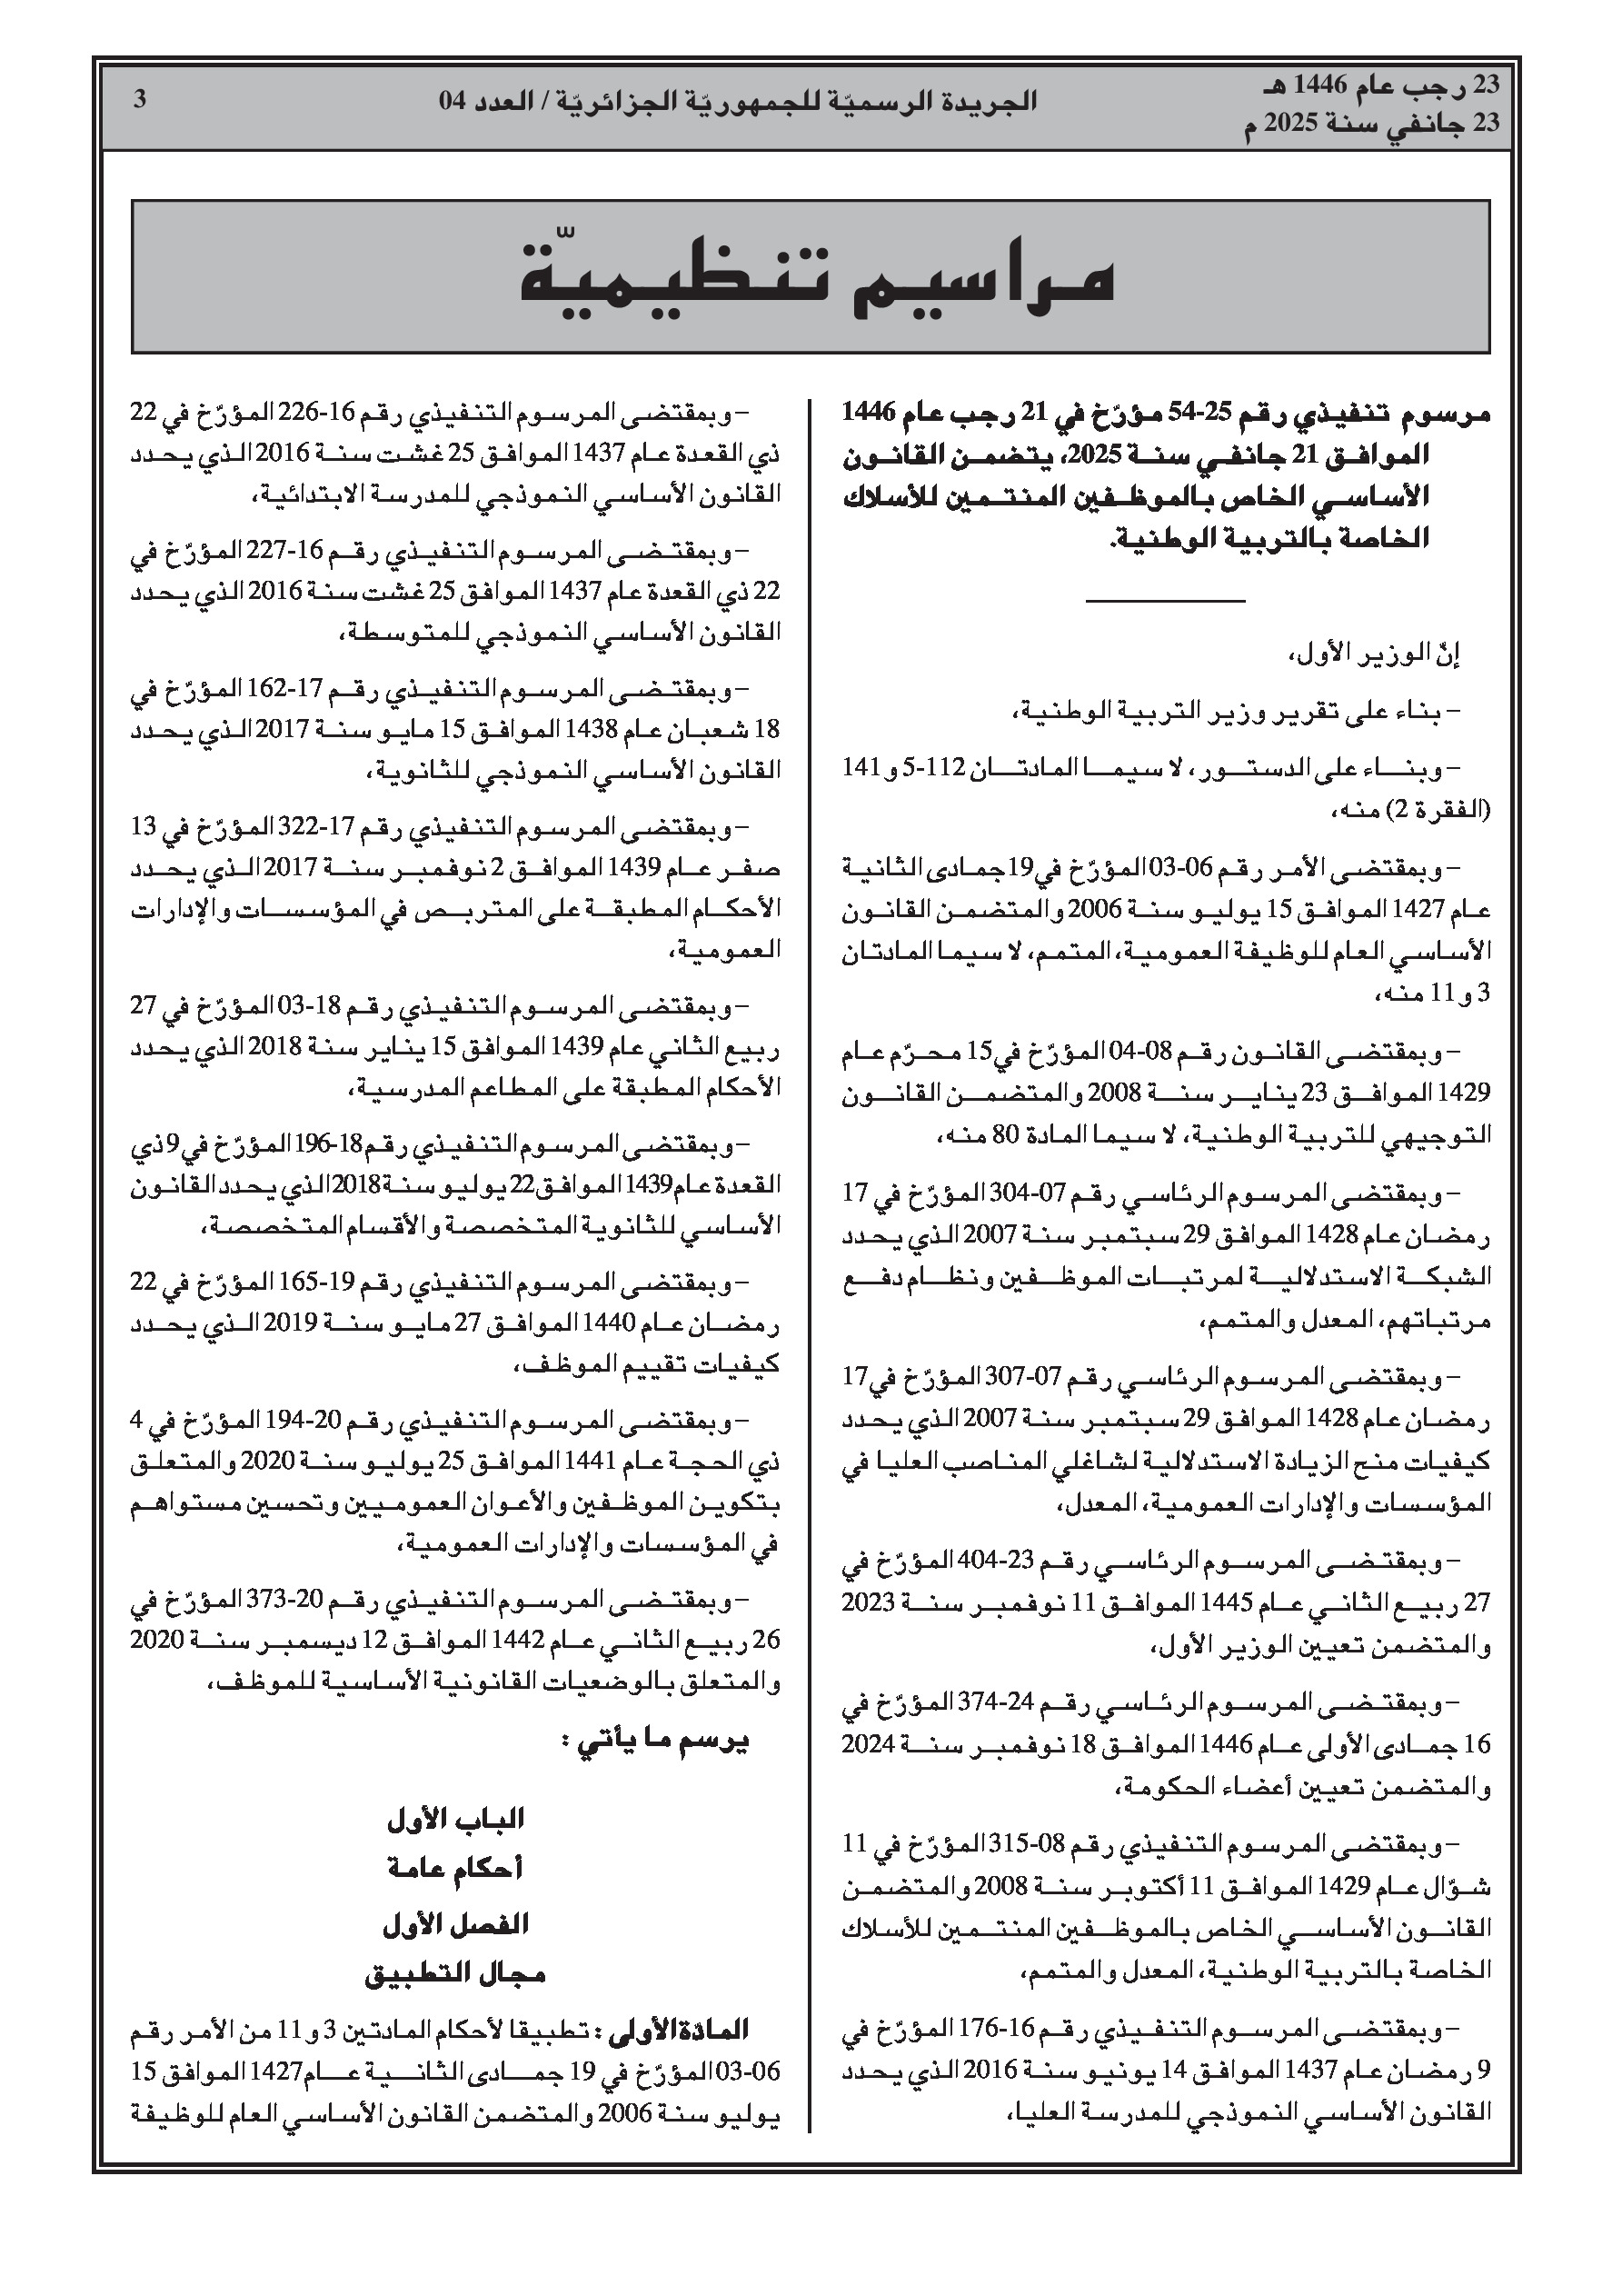 23 رجب عام 1446 هـ
23 جانفي سنة 2025 م
الجريدة الرسميّة للجمهوريّة الجزائريّة / العدد 04
3
مراسيم تنظيميّة
مرسوم تنفيذي رقم 25-54 مؤرّخ في 21 رجب عام 1446
الموافق 21 جانفي سنة 2025، يتضمن القانون
الأساسي الخاص بالموظفين المنتمين للأسلاك
الخاصة بالتربية الوطنية.
إنّ الوزير الأول،
– بناء على تقرير وزير التربية الوطنية،
– وبناء على الدستور، لا سيما المادتان 112-5 و 141
(الفقرة 2) منه،
– وبمقتضى الأمر رقم 06-03 المؤرّخ في19 جمادى الثانية
عام 1427 الموافق 15 يوليو سنة 2006 والمتضمن القانون
الأساسي العام للوظيفة العمومية، المتمم، لا سيما المادتان
3 و 11 منه،
– وبمقتضى القانون رقم 08-04 المؤرّخ في15 محرّم عام
1429 الموافق 23 يناير سنة 2008 والمتضمن القانون
التوجيهي للتربية الوطنية، لا سيما المادة 80 منه،
– وبمقتضى المرسوم الرئاسي رقم 07-304 المؤرّخ في 17
رمضان عام 1428 الموافق 29 سبتمبر سنة 2007 الذي يحدد
الشبكة الاستدلالية لمرتبات الموظفين ونظام دفع
مرتباتهم، المعدل والمتمم،
– وبمقتضى المرسوم الرئاسي رقم 07-307 المؤرّخ في17
رمضان عام 1428 الموافق 29 سبتمبر سنة 2007 الذي يحدد
كيفيات منح الزيادة الاستدلالية لشاغلي المناصب العليا في
المؤسسات والإدارات العمومية، المعدل،
– وبمقتضى المرسوم الرئاسي رقم 23-404 المؤرّخ في
27 ربيع الثاني عام 1445 الموافق 11 نوفمبر سنة 2023
والمتضمن تعيين الوزير الأول،
– وبمقتضى المرسوم الرئاسي رقم 24-374 المؤرّخ في
16 جمادى الأولى عام 1446 الموافق 18 نوفمبر سنة 2024
والمتضمن تعيين أعضاء الحكومة،
– وبمقتضى المرسوم التنفيذي رقم 08-315 المؤرّخ في 11
شوّال عام 1429 الموافق 11 أكتوبر سنة 2008 والمتضمن
القانون الأساسي الخاص بالموظفين المنتمين للأسلاك
الخاصة بالتربية الوطنية، المعدل والمتمم،
– وبمقتضى المرسوم التنفيذي رقم 16-176 المؤرّخ في
9 رمضان عام 1437 الموافق 14 يونيو سنة 2016 الذي يحدد
القانون الأساسي النموذجي للمدرسة العليا،
– وبمقتضى المرسوم التنفيذي رقم 16-226 المؤرّخ في 22
ذي القعدة عام 1437 الموافق 25 غشت سنة 2016 الذي يحدد
القانون الأساسي النموذجي للمدرسة الابتدائية،
– وبمقتضى المرسوم التنفيذي رقم 16-227 المؤرّخ في
22 ذي القعدة عام 1437 الموافق 25 غشت سنة 2016 الذي يحدد
القانون الأساسي النموذجي للمتوسطة،
– وبمقتضى المرسوم التنفيذي رقم 17-162 المؤرّخ في
18 شعبان عام 1438 الموافق 15 مايو سنة 2017 الذي يحدد
القانون الأساسي النموذجي للثانوية،
– وبمقتضى المرسوم التنفيذي رقم 17-322 المؤرّخ في 13
صفر عام 1439 الموافق 2 نوفمبر سنة 2017 الذي يحدد
الأحكام المطبقة على المتربص في المؤسسات والإدارات
العمومية،
– وبمقتضى المرسوم التنفيذي رقم 18-03 المؤرّخ في 27
ربيع الثاني عام 1439 الموافق 15 يناير سنة 2018 الذي يحدد
الأحكام المطبقة على المطاعم المدرسية،
– وبمقتضى المرسوم التنفيذي رقم 18-196 المؤرّخ في 9 ذي
القعدة عام 1439 الموافق 22 يوليو سنة 2018 الذي يحدد القانون
الأساسي للثانوية المتخصصة والأقسام المتخصصة،
– وبمقتضى المرسوم التنفيذي رقم 19-165 المؤرّخ في 22
رمضان عام 1440 الموافق 27 مايو سنة 2019 الذي يحدد
كيفيات تقييم الموظف،
– وبمقتضى المرسوم التنفيذي رقم 20-194 المؤرّخ في 4
ذي الحجة عام 1441 الموافق 25 يوليو سنة 2020 والمتعلق
بتكوين الموظفين والأعوان العموميين وتحسين مستواهم
في المؤسسات والإدارات العمومية،
– وبمقتضى المرسوم التنفيذي رقم 20-373 المؤرّخ في
26 ربيع الثاني عام 1442 الموافق 12 ديسمبر سنة 2020
والمتعلق بالوضعيات القانونية الأساسية للموظف،
يرسم ما يأتي :
الباب الأول
أحكام عامة
الفصل الأول
مجال التطبيق
المادّة الأولى : تطبيقا لأحكام المادتين 3 و 11 من الأمر رقم
06-03 المؤرّخ في 19 جمادى الثانية عام 1427 الموافق 15
يوليو سنة 2006 والمتضمن القانون الأساسي العام للوظيفة